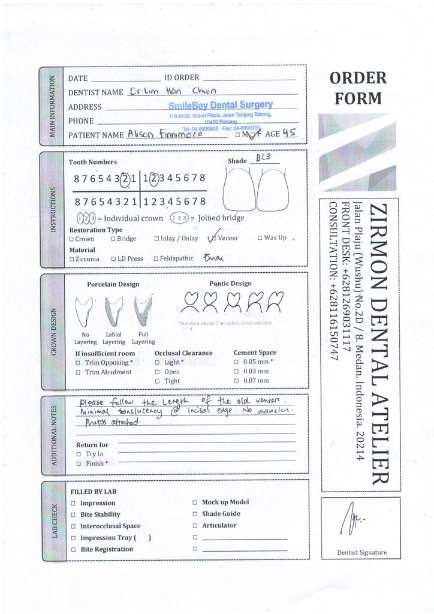 ORDER
FORM
MAIN INFORMATION
DATE ID ORDER
DENTIST NAME Dr Lim Wan Chun
ADDRESS SmileBay Dental Surgery
PHONE
PATIENT NAME Alison M F AGE 45
INSTRUCTIONS
Tooth Numbers Shade BL3
8 7 6 5 4 3 2 1 1 2 3 4 5 6 7 8
8 7 6 5 4 3 2 1 1 2 3 4 5 6 7 8
1 2 3 = Individual crown 1 2 3 = Joined bridge
Restoration Type
Crown Bridge Inlay / Onlay Veneer Wax Up
Material
Zirconia LD Press Feldspathic Emax
CROWN DESIGN
Porcelain Design Pontic Design
No Labial Full
Layering Layering Layering
If insufficient room Occlusal Clearance Cement Space
Trim Opposing * Light * 0.05 mm *
Trim Abudment Open 0.03 mm
Tight 0.07 mm
ADDITIONAL NOTES
Please follow the Length of the old veneers.
Minimal translucency @ incisal edge. No mamelon.
Photos attached
Return for
Try In
Finish *
LAB CHECK
FILLED BY LAB
Impression Mock up Model
Bite Stability Shade Guide
Interocclusal Space Articulator
Impression Tray ( )
Bite Registration
ZIRMON DENTAL ATELIER
Jalan Plaju (Wushu) No.2D / 8. Medan. Indonesia. 20214
FRONT DESK: +6281269031117
CONSULTATION: +628116150747
Dentist Signature